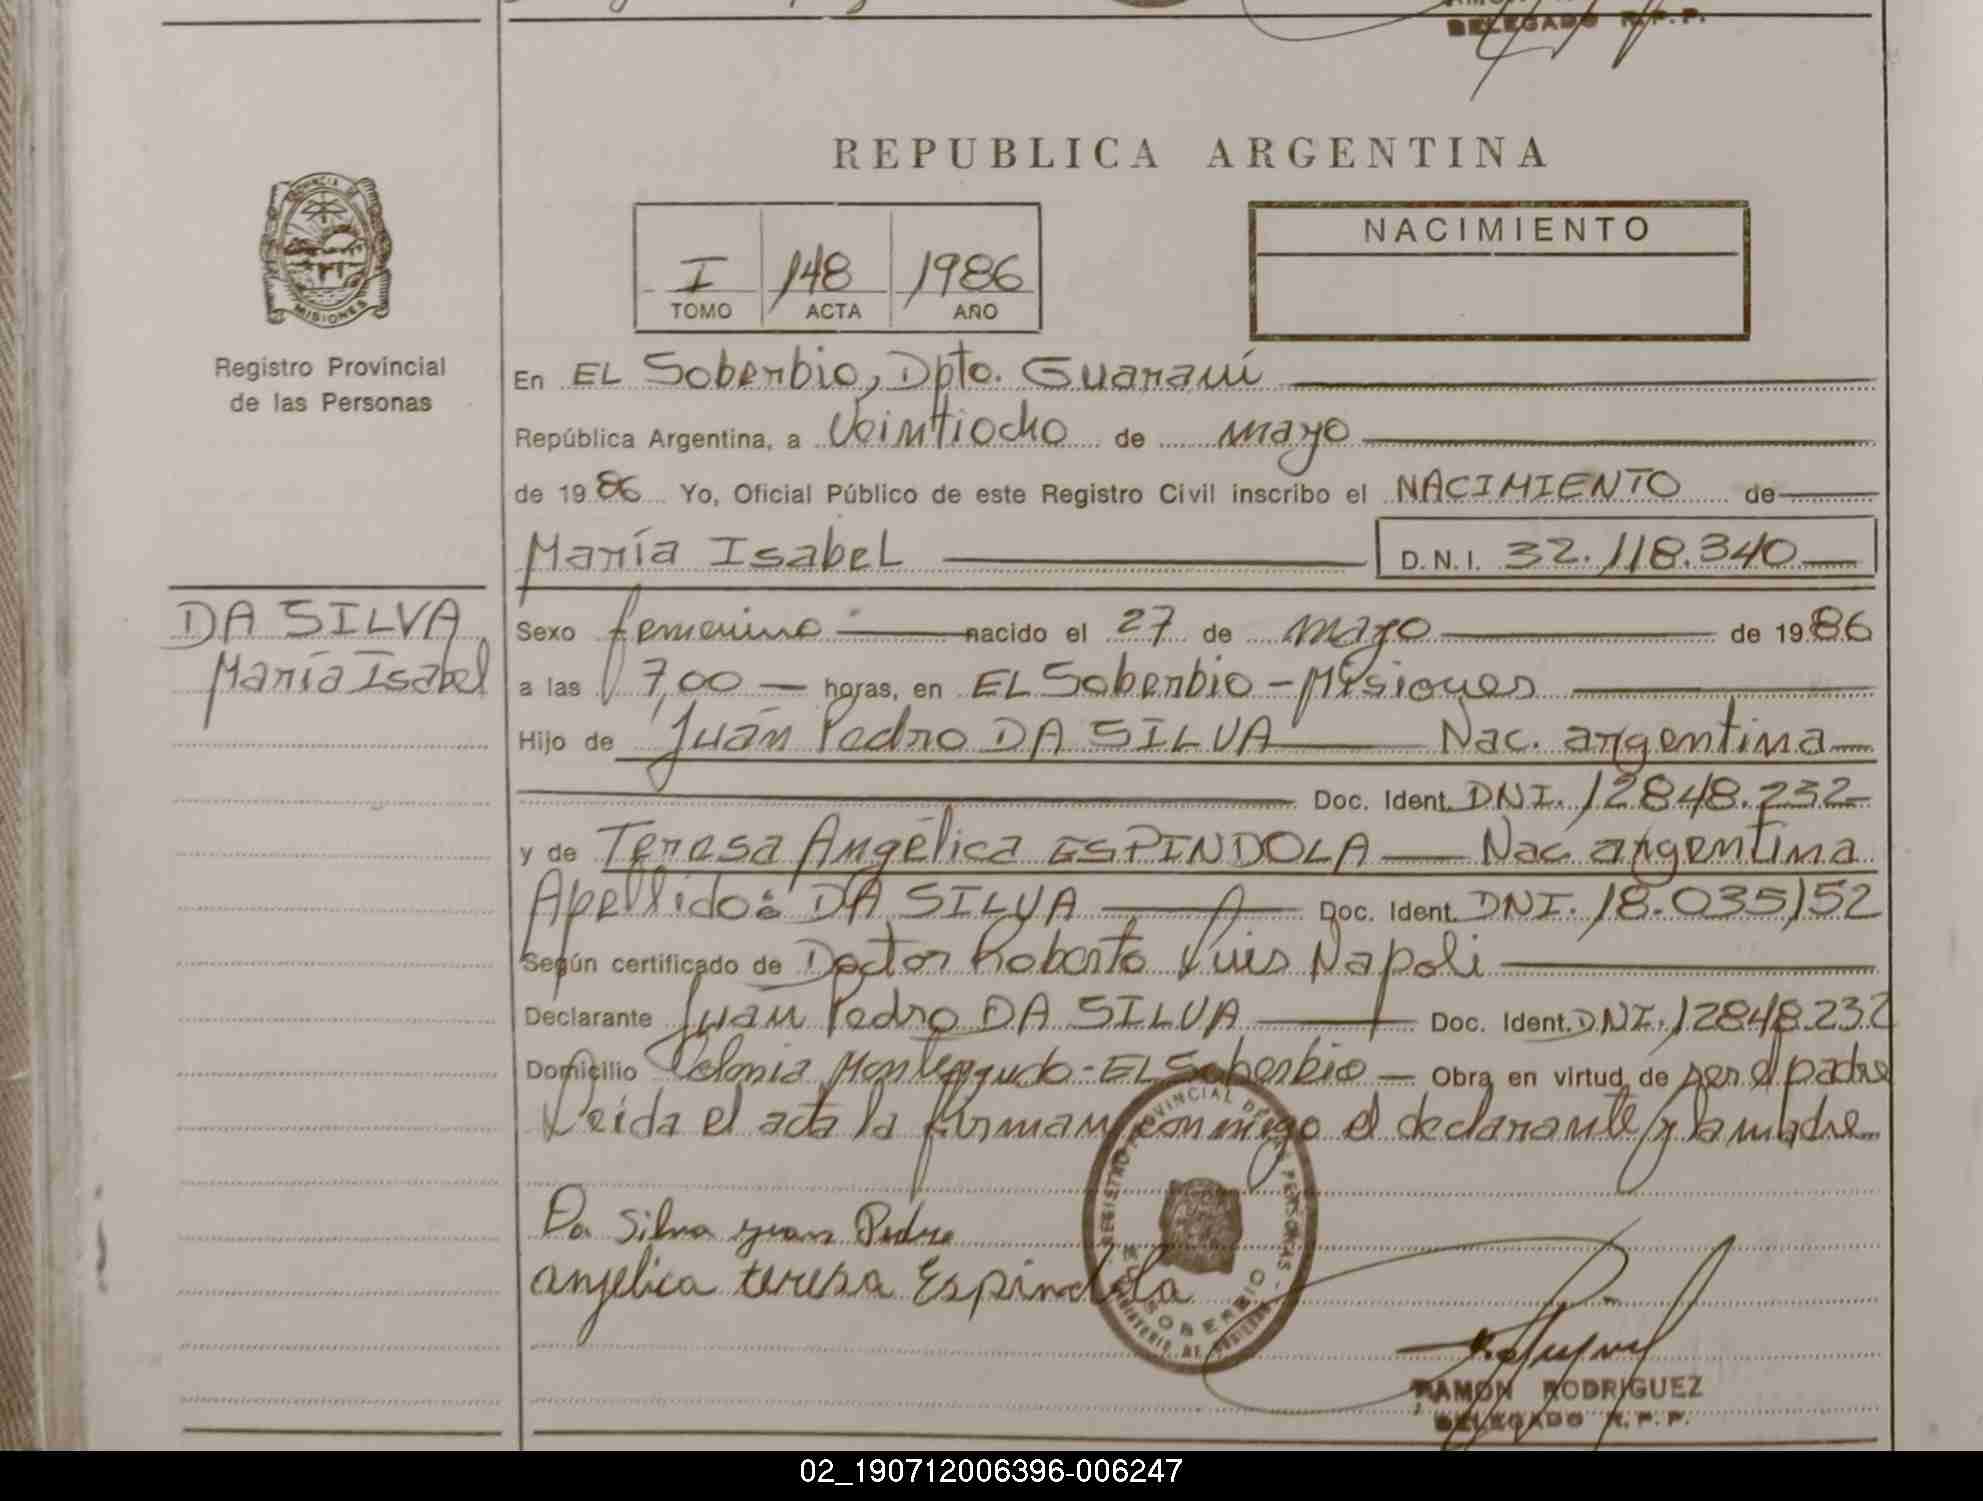 DELEGADO R.P.P.
REPUBLICA ARGENTINA
PROVINCIA DE
MISIONES
Registro Provincial
de las Personas
I 148 1986
TOMO ACTA AÑO
NACIMIENTO
En EL Soberbio, Dpto. Guaraní
República Argentina, a Veintiocho de mayo
de 1986 Yo, Oficial Público de este Registro Civil inscribo el NACIMIENTO de
María Isabel D.N.I. 32.118.340
DA SILVA
María Isabel
Sexo femenino nacido el 27 de mayo de 1986
a las 7,00 horas, en EL Soberbio - Misiones
Hijo de Juan Pedro DA SILVA Nac. argentina
Doc. Ident. DNI. 12848.232
y de Teresa Angélica ESPINDOLA Nac. argentina
Apellido: DA SILVA Doc. Ident. DNI. 18.035152
Según certificado de Doctor Roberto Luis Napoli
Declarante Juan Pedro DA SILVA Doc. Ident. DNI. 12848.232
Domicilio Colonia Monteagudo - EL Soberbio Obra en virtud de ser el padre
Leida el acta la firman conmigo el declarante y la madre
Da Silva Juan Pedro
angelica teresa Espindola
REGISTRO PROVINCIAL DE LAS PERSONAS
EL SOBERBIO
MINISTERIO DE GOBIERNO
RAMON RODRIGUEZ
DELEGADO R.P.P.
02_190712006396-006247